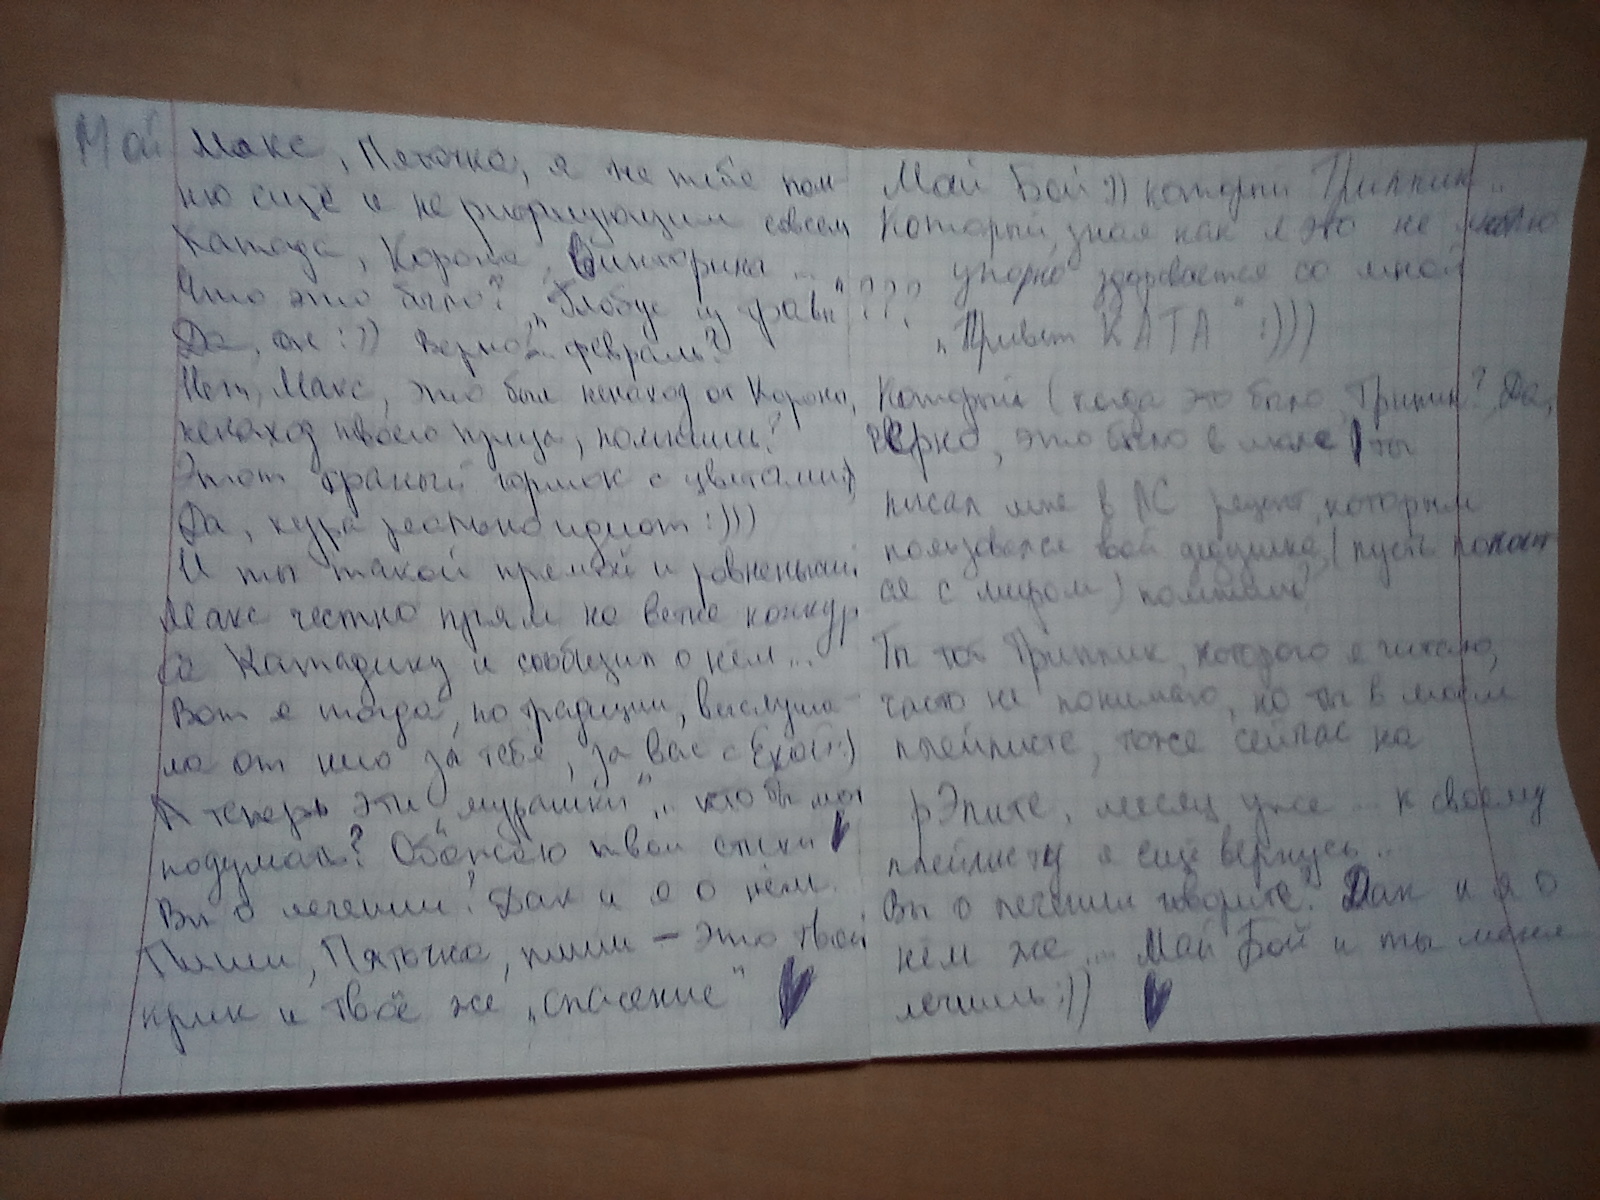 Мой Макс, Пяточка, я же тебя пом-
ню ещё и не рифмующим совсем
Катада, Корона, Викторина ...
Что это было? „Глобус из травы" ???
Да, он :)) Верно? февраль?
Нет, Макс, это был ненаход от Короны,
ненаход твоего пупца, помнишь?
Этот драный горшок с цветами)
Да, кура реально идиот :)))
И ты такой прямой и ровненький
Макс честно прям на ветке конкур
са Катадику и сообщил о нём ...
Вот я тогда, по традиции, выслуша-
ла от него за тебя, за вас с Ехой :)
А теперь эти „мурашки" ... кто бы мог
подумать? Обожаю твои стихи
Вы о лечении? Дак и я о нём.
Пиши, Пяточка, пиши – это твой
крик и твоё же „спасение"
Мой Бой )) который Триппик ..
Который, зная как я это не люблю
упорно здоровается со мной
„Привет КАТА" :)))
Который (когда это было, Триппик? Да,
верно, это было в мае) ты
писал мне в ЛС рецепт, которым
пользовался твой дедушка, (пусть покоит
ся с миром) помнишь?
Ты тот Триппик, которого я читаю,
часто не понимаю, но ты в моём
плейлисте, тоже сейчас на
рЭпите, месяц уже ... к своему
плейлисту я ещё вернусь ...
Вы о лечении говорите? Дак и я о
нём же ... Мой Бой и ты меня
лечишь :))